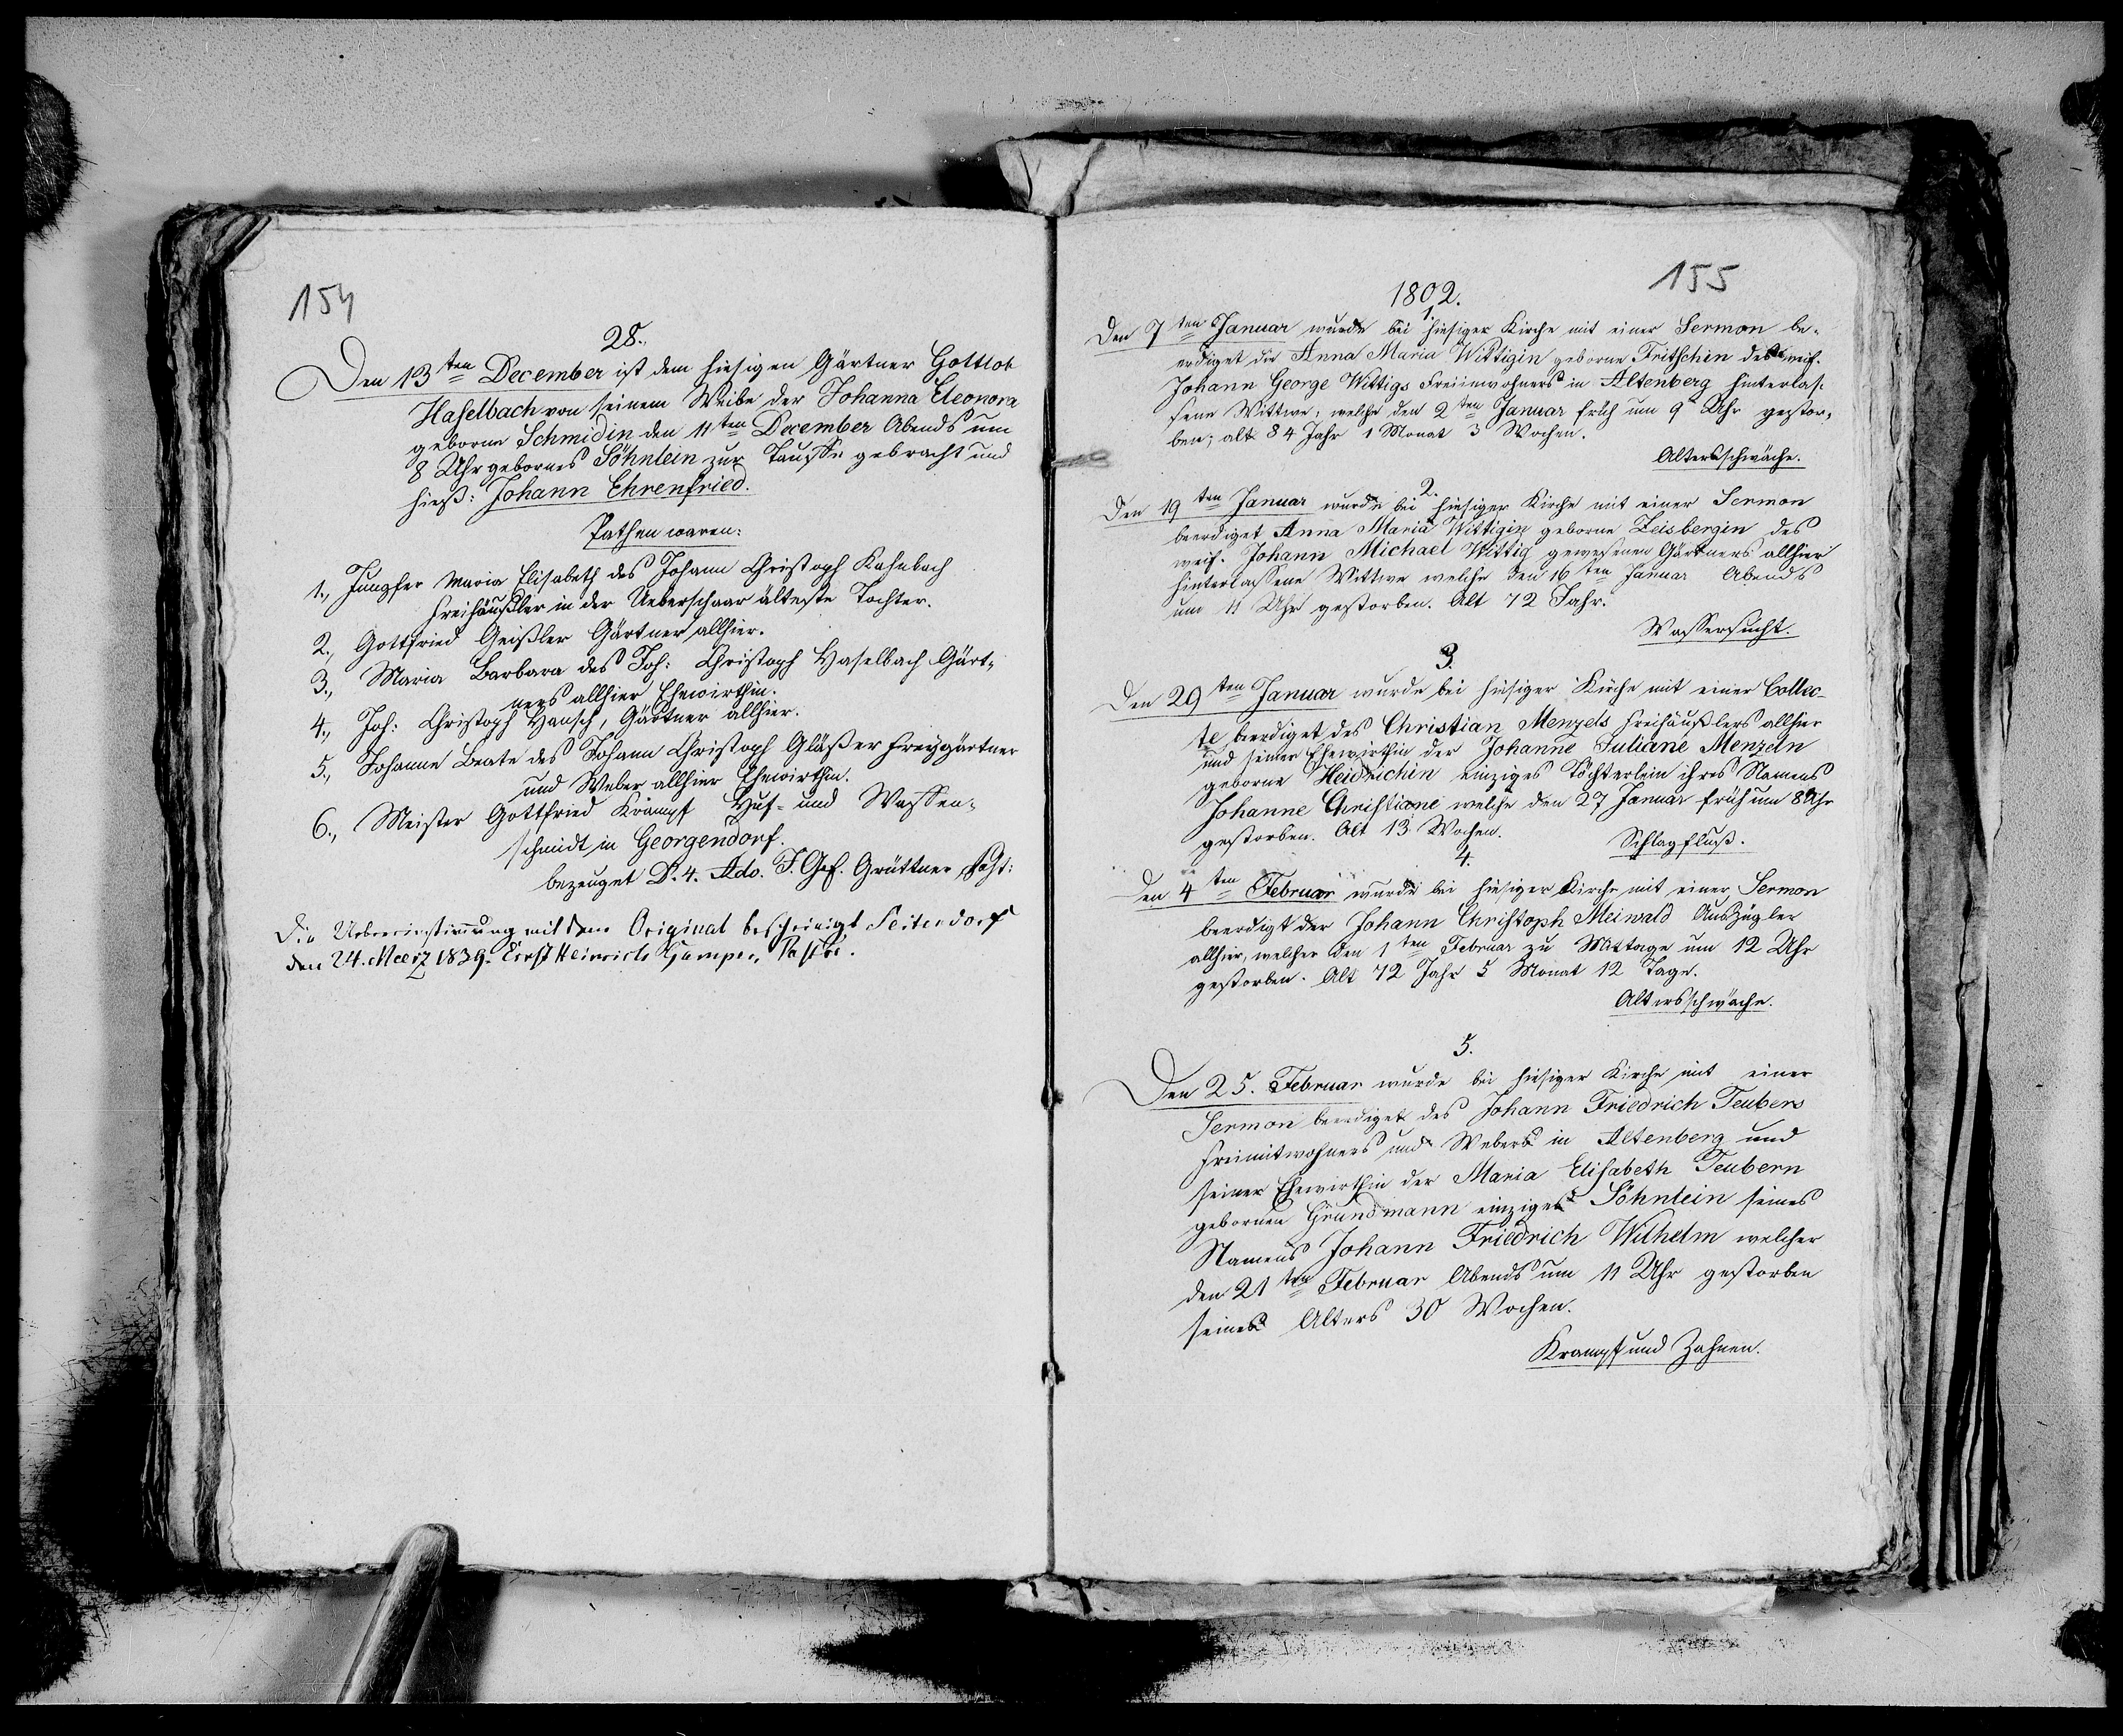 154
28.
Den 13ten December ist dem hiesigen Gärtner Gottlob
Haselbach von seinem Weibe der Johanna Eleonora
geborne Schmidin den 11ten December Abends um
8 Uhr gebornes Söhnlein zur Tauffe gebracht und
hieß: Johann Ehrenfried.
Pathen waren:
1., Jungfer Maria Elisabeth des Johann Christoph Kahlbach
Freihäußler in der Ueberschaar älteste Tochter.
2., Gottfried Geißler Gärtner allhier.
3., Maria Barbara des Joh: Christoph Haselbach Gärt-
ners allhier Ehewirthin.
4., Joh: Christoph Hansch, Gärtner allhier.
5., Johanne Beate des Johann Christoph Gläßer Freygärtner
und Weber allhier Ehewirthin.
6., Meister Gottfried Krampf Huf- und Waffen-
schmidt in Georgendorf.
bezeuget D. 4. Adv. J. Gf. Grüttner, Past:
Die Uebereinstimmung mit dem Original bescheinigt Seitendorf
den 24. Meerz 1839. Ernst Heinrich Gamper, Pastor.
155
1802.
1.
Den 7ten Januar wurde bei hiesiger Kirche mit einer Sermon be-
erdiget die Anna Maria Wittigin geborne Fritschin des weil.
Johann George Wittigs Freiinwohners in Altenberg hinterlas-
sene Wittwe, welche den 2ten Januar früh um 9 Uhr gestor-
ben; alt 84 Jahr 1 Monat 3 Wochen.
Altersschwäche.
2.
Den 19ten Januar wurde bei hiesiger Kirche mit einer Sermon
beerdiget Anna Maria Wittigin geborne Zeisbergin des
weil. Johann Michael Wittig gewesenen Gärtners allhier
hinterlassene Wittwe welche den 16ten Januar Abends
um 11 Uhr gestorben. Alt 72 Jahr.
Wassersucht.
3.
Den 29ten Januar wurde bei hiesiger Kirche mit einer Collec-
te beerdiget des Christian Menzels Freihäußlers allhier
und seiner Ehewirthin der Johanne Juliane Menzeln
geborne Heidrichin einziges Töchterlein ihres Namens
Johanne Christiane welche den 27 Januar früh um 8 Uhr
gestorben. Alt 13 Wochen.
Schlagfluß.
4.
Den 4ten Februar wurde bei hiesiger Kirche mit einer Sermon
beerdigt der Johann Christoph Meiwald Auszügler
allhier, welcher den 1ten Februar zu Mittage um 12 Uhr
gestorben. Alt 72 Jahr 5 Monat 12 Tage.
Altersschwäche.
5.
Den 25. Februar wurde bei hiesiger Kirche mit einer
Sermon beerdiget des Johann Friedrich Teubers
Freimitwohners und Webers in Altenberg und
seiner Ehewirthin der Maria Elisabeth Teubern
gebornen Grundmann einziges Söhnlein seines
Namens Johann Friedrich Wilhelm welcher
den 21ten Februar Abends um 11 Uhr gestorben
seines Alters 30 Wochen.
Krampf und Zahnen.